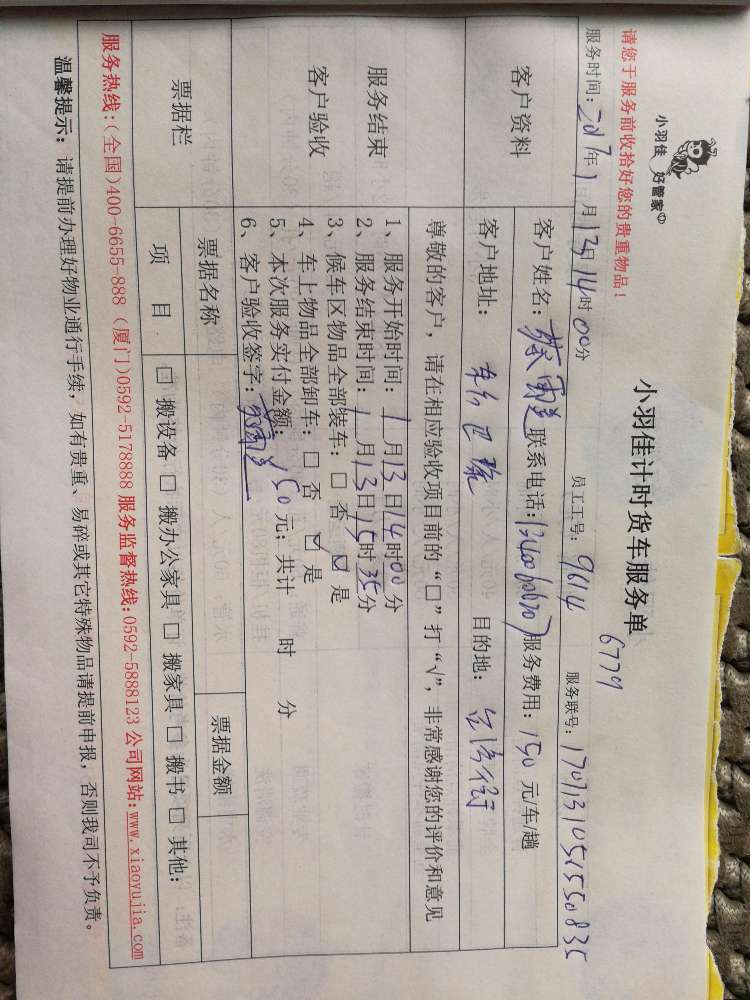 小羽佳 好管家
小羽佳计时货车服务单
请您于服务前收拾好您的贵重物品!
6779
服务时间: 2017年1月13日14时00分 员工工号: 9614 服务联号:
客户资料
客户姓名: 联系电话: 服务费用: 150元/车/趟
客户地址: 目的地:
尊敬的客户, 请在相应验收项目前的“□”打“√”, 非常感谢您的评价和意见
服务结束
客户验收
1、服务开始时间: 1月13日14时00分
2、服务结束时间: 1月13日15时35分
3、候车区物品全部装车: □ 否 ☑ 是
4、车上物品全部卸车: □ 否 ☑ 是
5、本次服务实付金额: 150元; 共计 时 分
6、客户验收签字:
票据栏
票据名称 票据金额
项 目 □ 搬设备 □ 搬办公家具 □ 搬家具 □ 搬书 □ 其他:
服务热线:(全国)400-6655-888 (厦门)0592-5178888 服务监督热线:0592-5888123 公司网站:www.xiaoyujia.com
温馨提示: 请提前办理好物业通行手续, 如有贵重、易碎或其它特殊物品请提前申报, 否则我司不予负责。